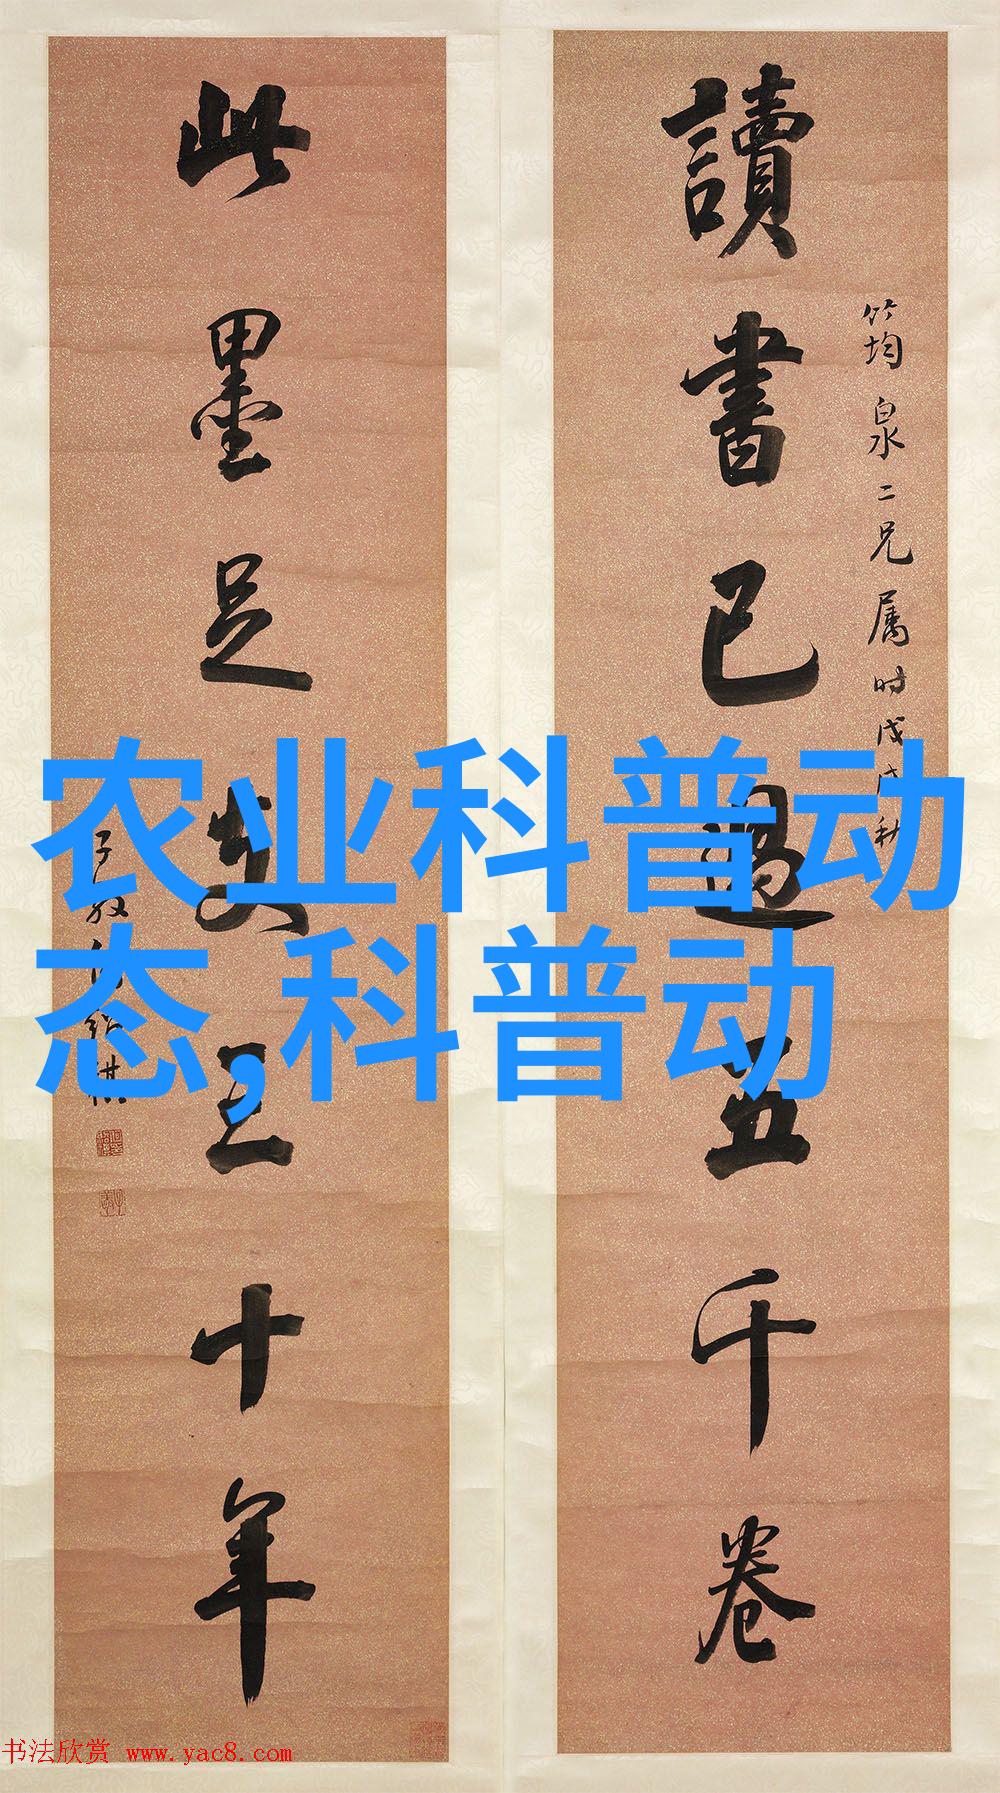 讀書已過五千卷
竹均泉二兄属时戊戌秋
此墨足支三十年
农业科普动
态,科普动
书法欣赏 www.yac8.com